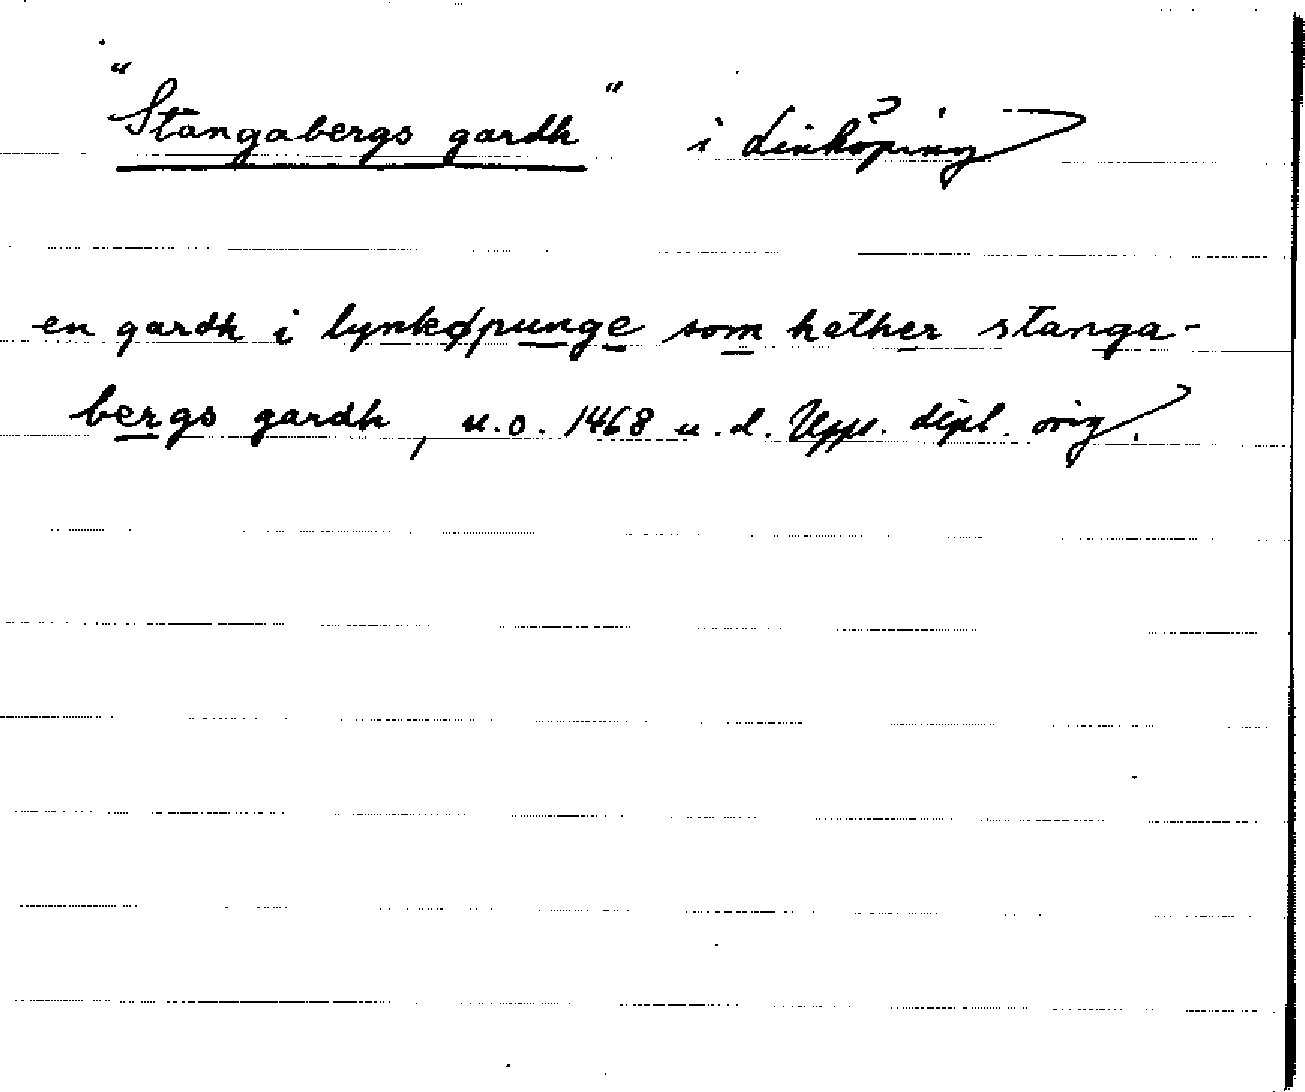 "Stangabergs gardh" i Linköping
en gardh i lynkøpunge som hether stanga-
bergs gardh, u.o. 1468 u.d. Upps. dipl. orig.